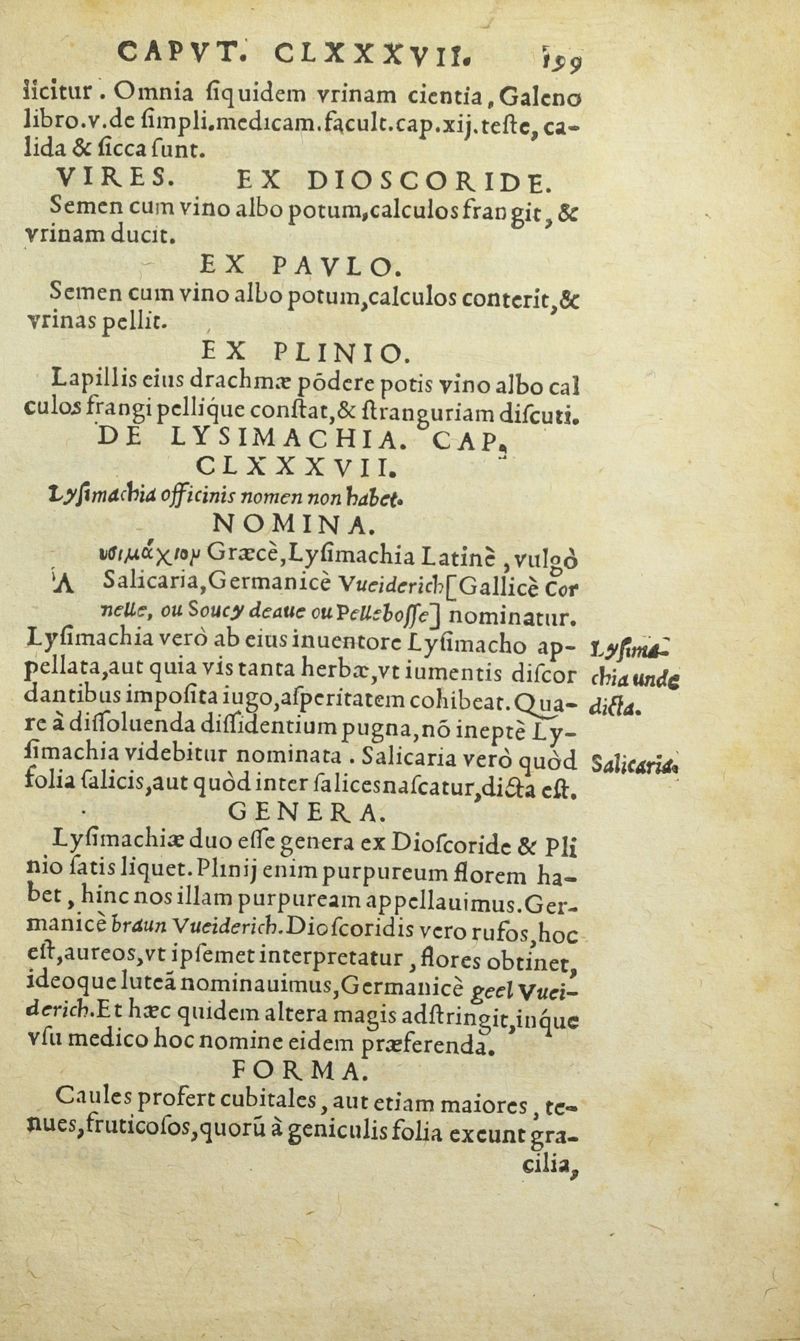 CAPVT. CLXXXVII. 159
licitur. Omnia ſiquidem vrinam cientia, Galeno
libro.v.de ſimpli.medicam.facult.cap.xij.teſte, ca-
lida & ſicca ſunt.
VIRES. EX DIOSCORIDE.
Semen cum vino albo potum,calculos frangit, &
vrinam ducit.
EX PAVLO.
Semen cum vino albo potum,calculos conterit,&
vrinas pellit.
EX PLINIO.
Lapillis eius drachmæ põdere potis vino albo cal
culos frangi pellique conſtat,& ſtranguriam diſcuti.
DE LYSIMACHIA. CAP.
CLXXXVII.
Lyſimachia officinis nomen non habet.
NOMINA.
υσιμάχιον Græcè,Lyſimachia Latinè ,vulgò
Λ Salicaria,Germanicè Vueiderich[Gallicè Cor
nelle, ou Soucy deaue ou Pelleboſſe] nominatur.
Lyſimachia verò ab eius inuentore Lyſimacho ap- Lyſima-
pellata,aut quia vis tanta herbæ,vt iumentis diſcor chia unde
dantibus impoſita iugo,aſperitatem cohibeat.Qua- dicta.
re à diſſoluenda diſſidentium pugna,nõ ineptè Ly-
ſimachia videbitur nominata . Salicaria verò quòd Salicaria.
folia ſalicis,aut quòd inter ſalices naſcatur,dicta eſt.
GENERA.
Lyſimachiæ duo eſſe genera ex Dioſcoride & Pli
nio ſatis liquet.Plinij enim purpureum florem ha-
bet , hinc nos illam purpuream appellauimus.Ger-
manicè braun Vueiderich.Dioſcoridis vero rufos,hoc
eſt,aureos,vt ipſemet interpretatur , flores obtinet,
ideoque luteã nominauimus,Germanicè geel Vuei-
derich.Et hæc quidem altera magis adſtringit,inque
vſu medico hoc nomine eidem præferenda.
FORMA.
Caules profert cubitales, aut etiam maiores, te-
nues,fruticoſos,quorũ à geniculis folia exeunt gra-
cilia,